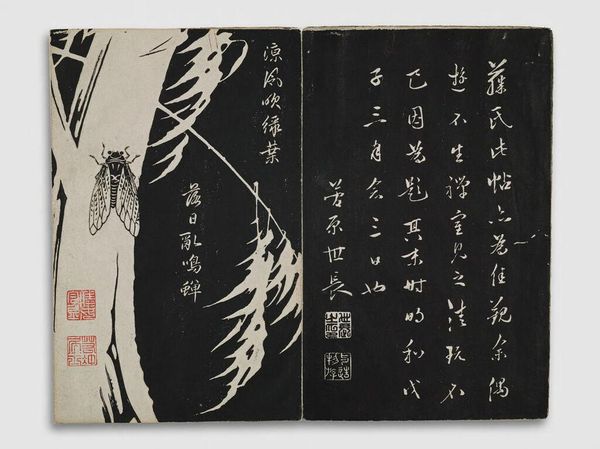 藤氏此帖亦為佳観余偶
遊不生禅室見之清玩不
已因為題其末時明和戊
子三月念三日也
菅原世長
凉風吹緑葉
落日亂鳴蟬